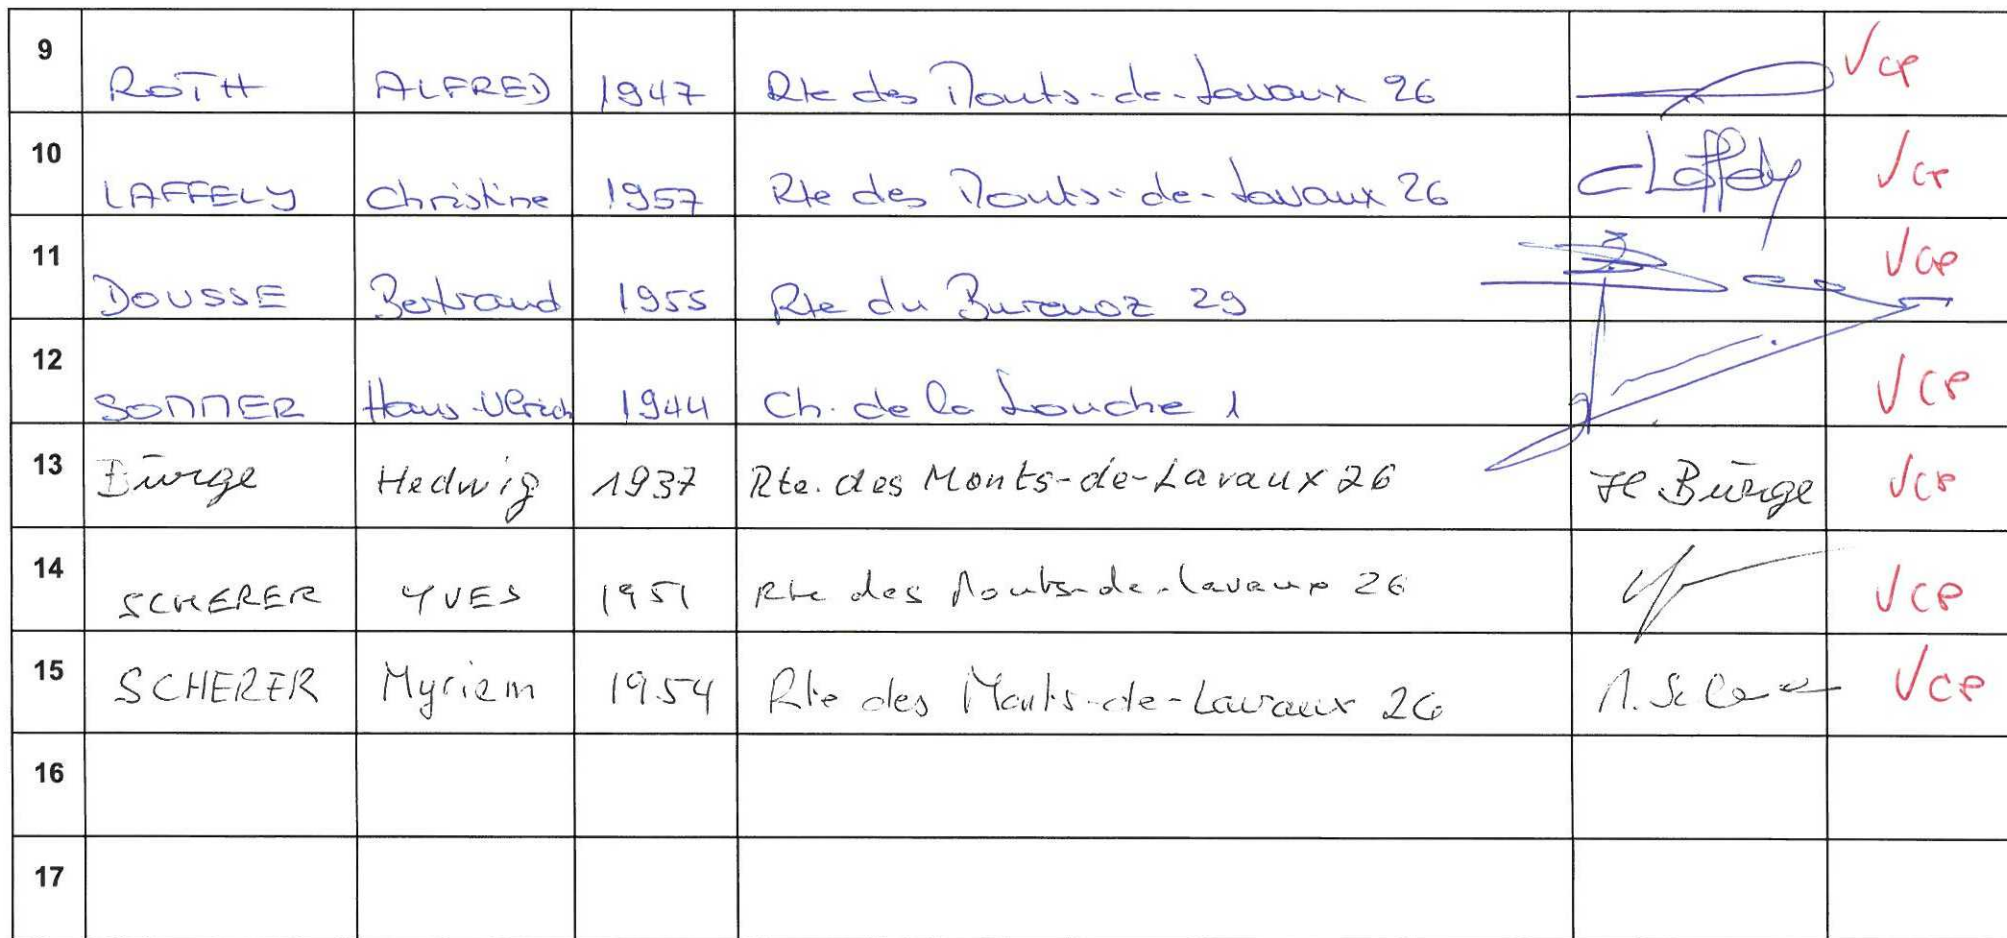 9 ROTH ALFRED 1947 Rte des Monts-de-Lavaux 26 √ CP
10 LAFFELY Christine 1957 Rte des Monts-de-Lavaux 26 CLaffely √ CP
11 DOUSSE Bertrand 1955 Rte du Burenoz 29 √ CP
12 SOMMER Hans-Ulrich 1944 Ch. de la Louche 1 √ CP
13 Bürge Hedwig 1937 Rte. des Monts-de-Lavaux 26 H. Bürge √ CP
14 SCHERER YVES 1951 Rte des Monts-de-Lavaux 26 √ CP
15 SCHERER Myriam 1954 Rte des Monts-de-Lavaux 26 √ CP
16
17